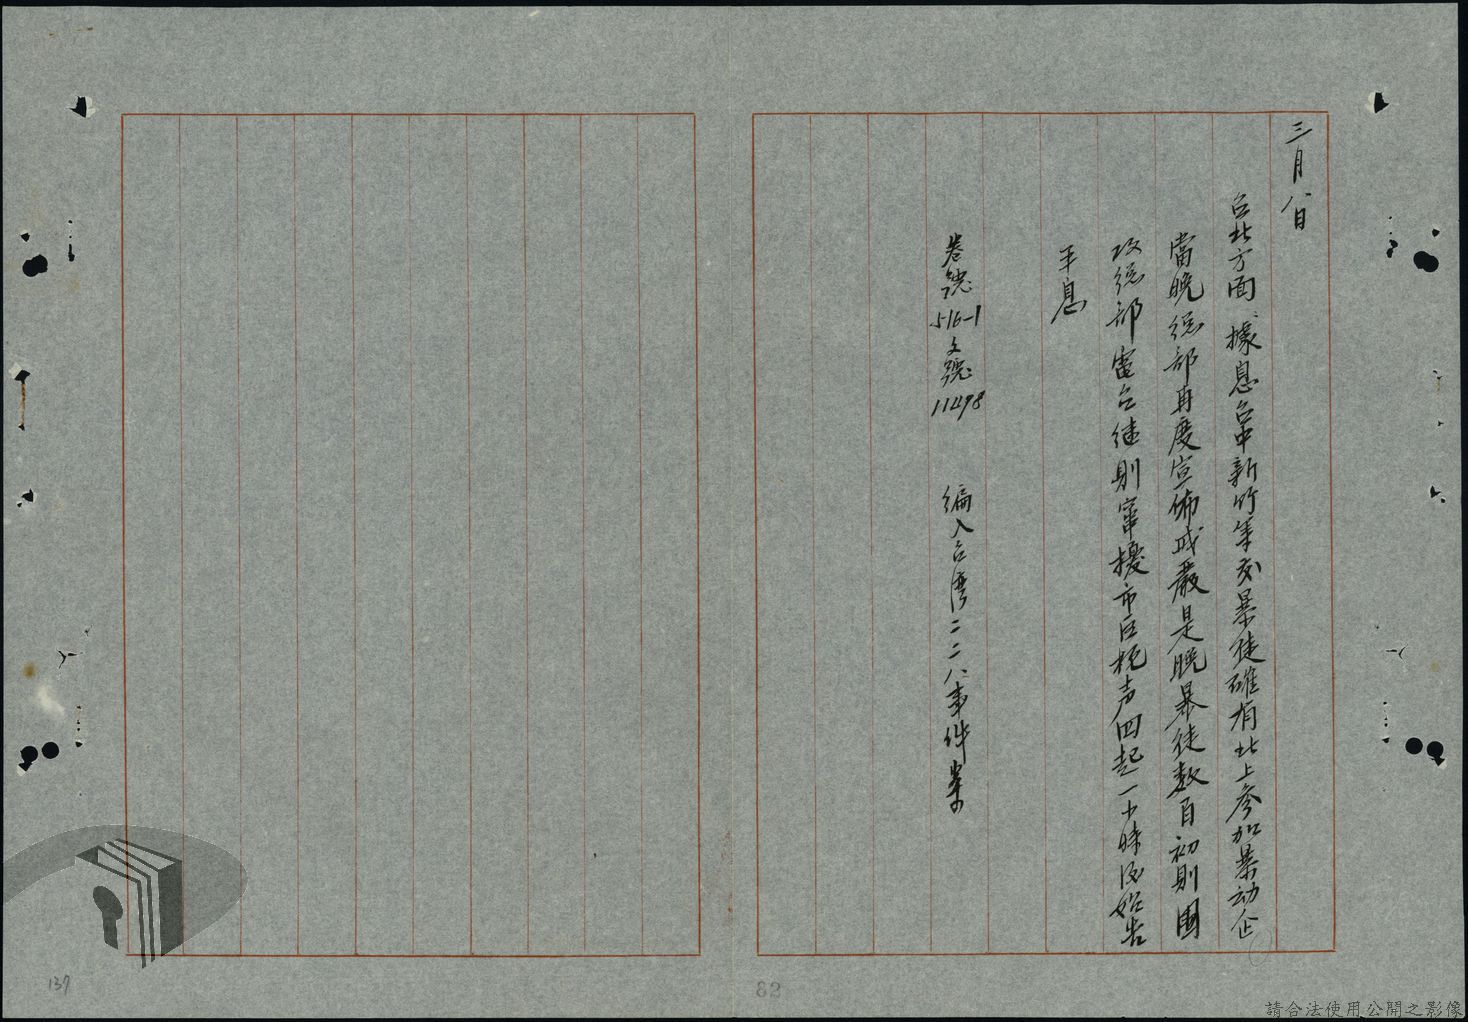 三月八日
台北方面、據息台中新竹等处暴徒確有北上參加暴动企
當晚總部再度宣佈戒嚴是晚暴徒数百初則圍
攻總部電台継則竄擾市区枪声四起一小時後始告
平息
卷號516-1文號11498 編入台湾二二八事件案
137
82
請合法使用公開之影像